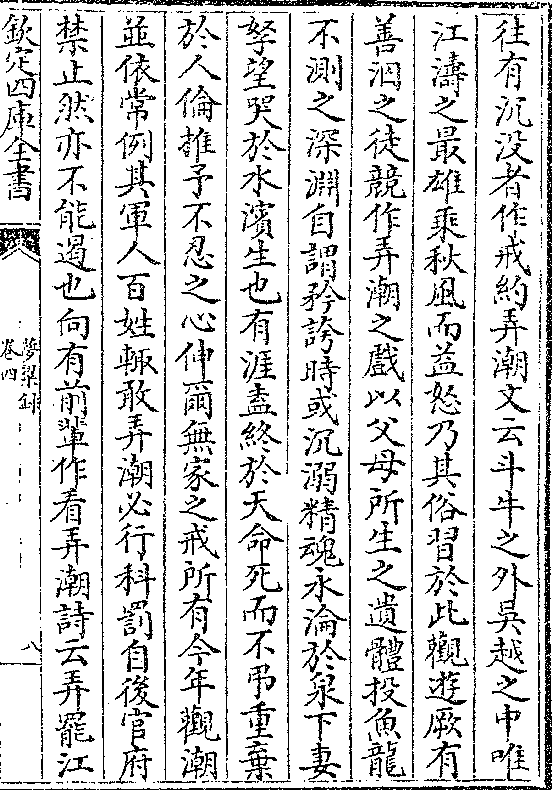 往有沉没者作戒約弄潮文云斗牛之外吳越之中唯
江濤之最雄乘秋風而益怒乃其俗習於此觀遊厥有
善泅之徒競作弄潮之戲以父母所生之遺體投魚龍
不測之深淵自謂矜誇時或沉溺精魂永淪於泉下妻
孥望哭於水濱生也有涯盍終於天命死而不弔重棄
於人倫推予不忍之心伸爾無家之戒所有今年觀潮
並依常例其軍人百姓輙敢弄潮必行科罰自後官府
禁止然亦不能遏也向有前輩作看弄潮詩云弄罷江
欽定四庫全書
夢粱錄
卷四
八